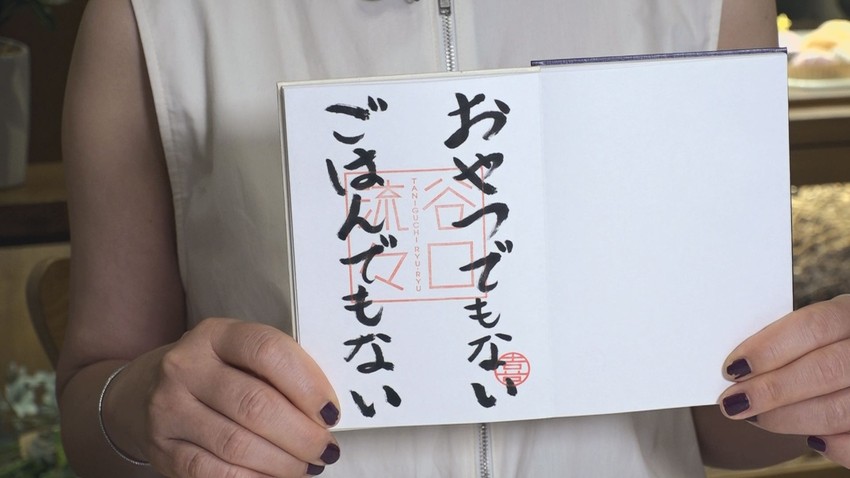 おやつでもない
ごはんでもない
谷口
流々
TANIGUCHI RYU-RYU